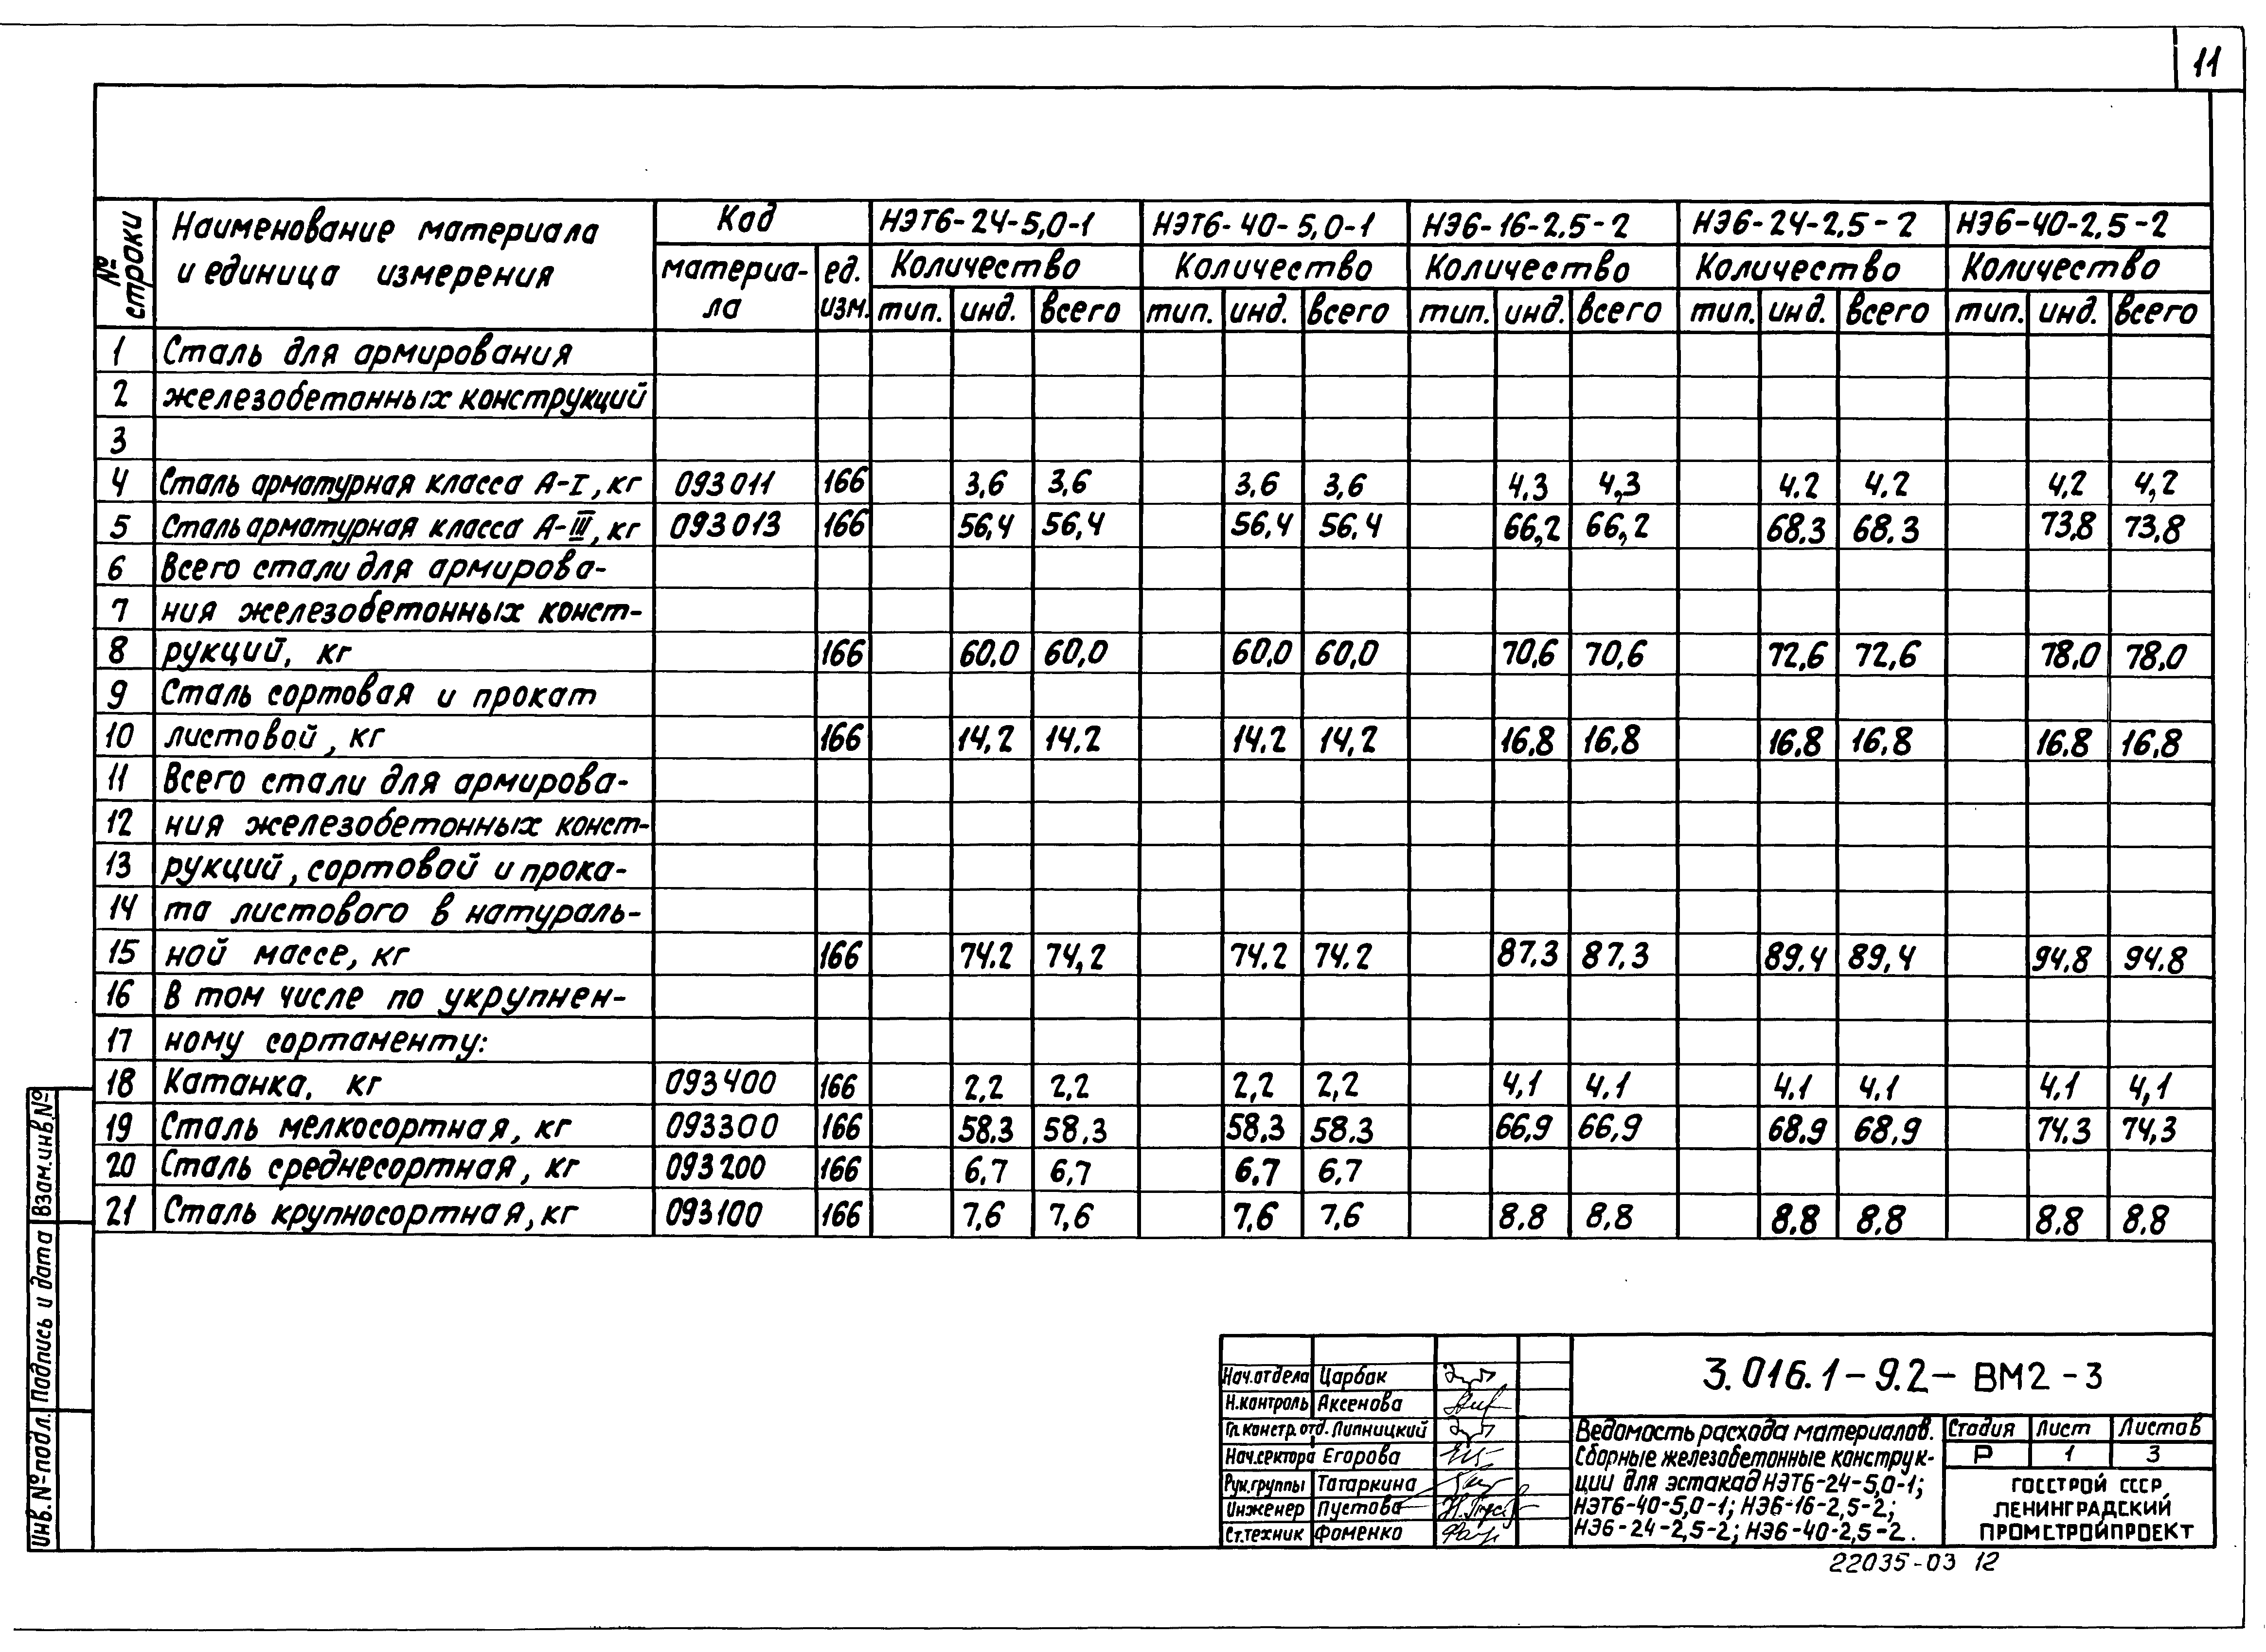 11
№ строки Наименование материала и единица измерения Код НЭТ6-24-5,0-1 НЭТ6-40-5,0-1 НЭ6-16-2.5-2 НЭ6-24-2,5-2 НЭ6-40-2,5-2
материала ед. изм. Количество Количество Количество Количество Количество
тип. инд. всего тип. инд. всего тип. инд. всего тип. инд. всего тип. инд. всего
1 Сталь для армирования
2 железобетонных конструкций
3
4 Сталь арматурная класса А-I, кг 093011 166 3,6 3,6 3,6 3,6 4.3 4,3 4.2 4.2 4,2 4,2
5 Сталь арматурная класса А-III, кг 093013 166 56,4 56,4 56,4 56,4 66,2 66,2 68.3 68.3 73,8 73,8
6 Всего стали для армирова-
7 ния железобетонных конст-
8 рукций, кг 166 60,0 60,0 60,0 60,0 70,6 70,6 72,6 72,6 78,0 78,0
9 Сталь сортовая и прокат
10 листовой, кг 166 14,2 14,2 14,2 14,2 16,8 16,8 16,8 16,8 16,8 16,8
11 Всего стали для армирова-
12 ния железобетонных конст-
13 рукций, сортовой и прока-
14 та листового в натураль-
15 ной массе, кг 166 74.2 74,2 74.2 74.2 87.3 87.3 89.4 89,4 94.8 94.8
16 В том числе по укрупнен-
17 ному сортаменту:
18 Катанка, кг 093400 166 2,2 2,2 2,2 2,2 4,1 4,1 4,1 4,1 4,1 4,1
19 Сталь мелкосортная, кг 093300 166 58.3 58,3 58,3 58.3 66,9 66,9 68,9 68,9 74.3 74,3
20 Сталь среднесортная, кг 093200 166 6,7 6,7 6,7 6,7
21 Сталь крупносортная, кг 093100 166 7,6 7,6 7,6 7,6 8.8 8,8 8.8 8.8 8.8 8.8
Инв. № подл. Подпись и дата Взам.инв.№
Нач.отдела Царбак
Н.контроль Аксенова
Гл.констр.отд. Липницкий
Нач.сектора Егорова
Рук.группы Татаркина
Инженер Пустова
Ст.техник Фоменко
3.016.1-9.2-ВМ2-3
Ведомость расхода материалов.
Сборные железобетонные конструк-
ции для эстакад НЭТ6-24-5,0-1;
НЭТ6-40-5,0-1; НЭ6-16-2,5-2;
НЭ6-24-2,5-2; НЭ6-40-2,5-2.
Стадия Лист Листов
Р 1 3
ГОССТРОЙ СССР,
ЛЕНИНГРАДСКИЙ
ПРОМСТРОЙПРОЕКТ
22035-03 12